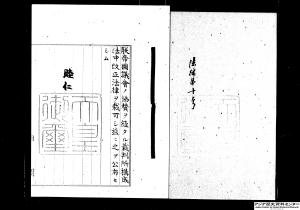 朕帝國議會ノ協贊ヲ經タル裁判所構成
法中改正法律ヲ裁可シ茲ニ之ヲ公布セ
シム
睦仁
天皇
御璽
法律第十号
アジア歴史資料センター